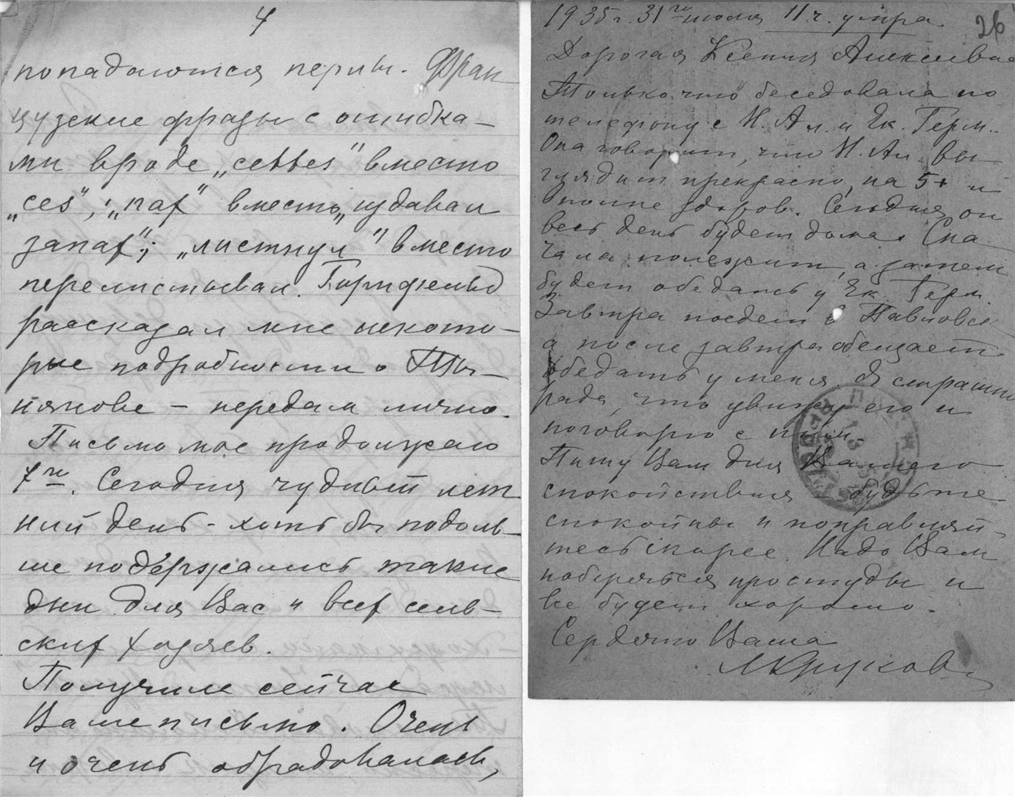 4
попадаются перлы. Фран
цузские фразы с ошибка-
ми вроде „cettes" вместо
„ces"; „пах" вместо „издавал
запах"; „листнул" вместо
перелистывал. Горнфельд
рассказал мне некото-
рые подробности о Ты-
нянове – передам лично.
Письмо мое продолжаю
7го. Сегодня чудный лет
ний день - хоть бы подоль-
ше подержались такие
дни для Вас и всех сель-
ских хозяев.
Получила сейчас
Ваше письмо. Очень
и очень обрадовалась,
26
1935 г. 31го июля 11 ч. утра.
Дорогая Ксения Алексеевна
Только что беседовала по
телефону с Н. Ал. и Ек. Герм.
Она говорит, что Н. Ал. вы-
глядит прекрасно, на 5+ и
вполне здоров. Сегодня он
весь день будет дома. Сна-
чала полежит, а затем
будет обедать у Ек. Герм.
Завтра поедет в Павловск
а после завтра обещает
обедать у меня. Я страшно
рада, что увижу его и
поговорю с ним.
Пишу Вам для Вашего
спокойствия будьте
спокойны и поправляй-
тесь скорее. Надо Вам
поберечься простуды и
все будет хорошо.
Сердечно Ваша